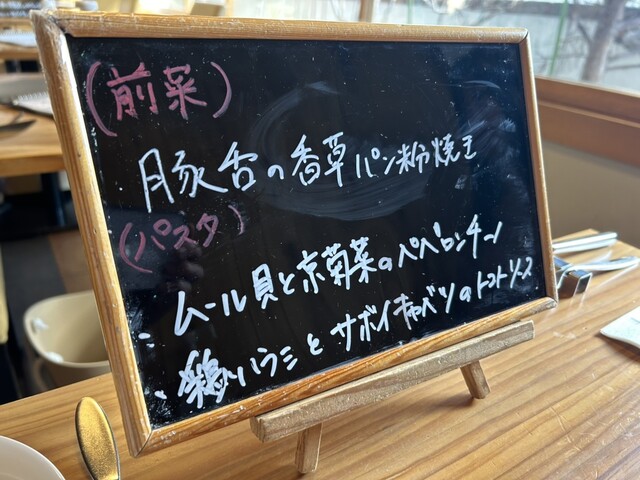 (前菜)
豚舌の香草パン粉焼き
(パスタ)
・ムール貝と京菊菜のペペロンチーノ
・鶏ハラミとサボイキャベツのトマトソース